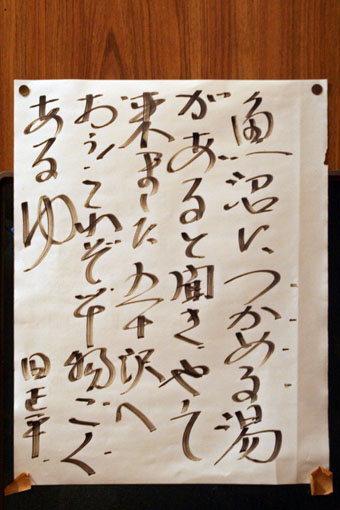 魚沼につかめる湯
があると聞きやて
来ました五十沢へ
おゝこれぞぞ物ごく
あるゆ
田辺一平